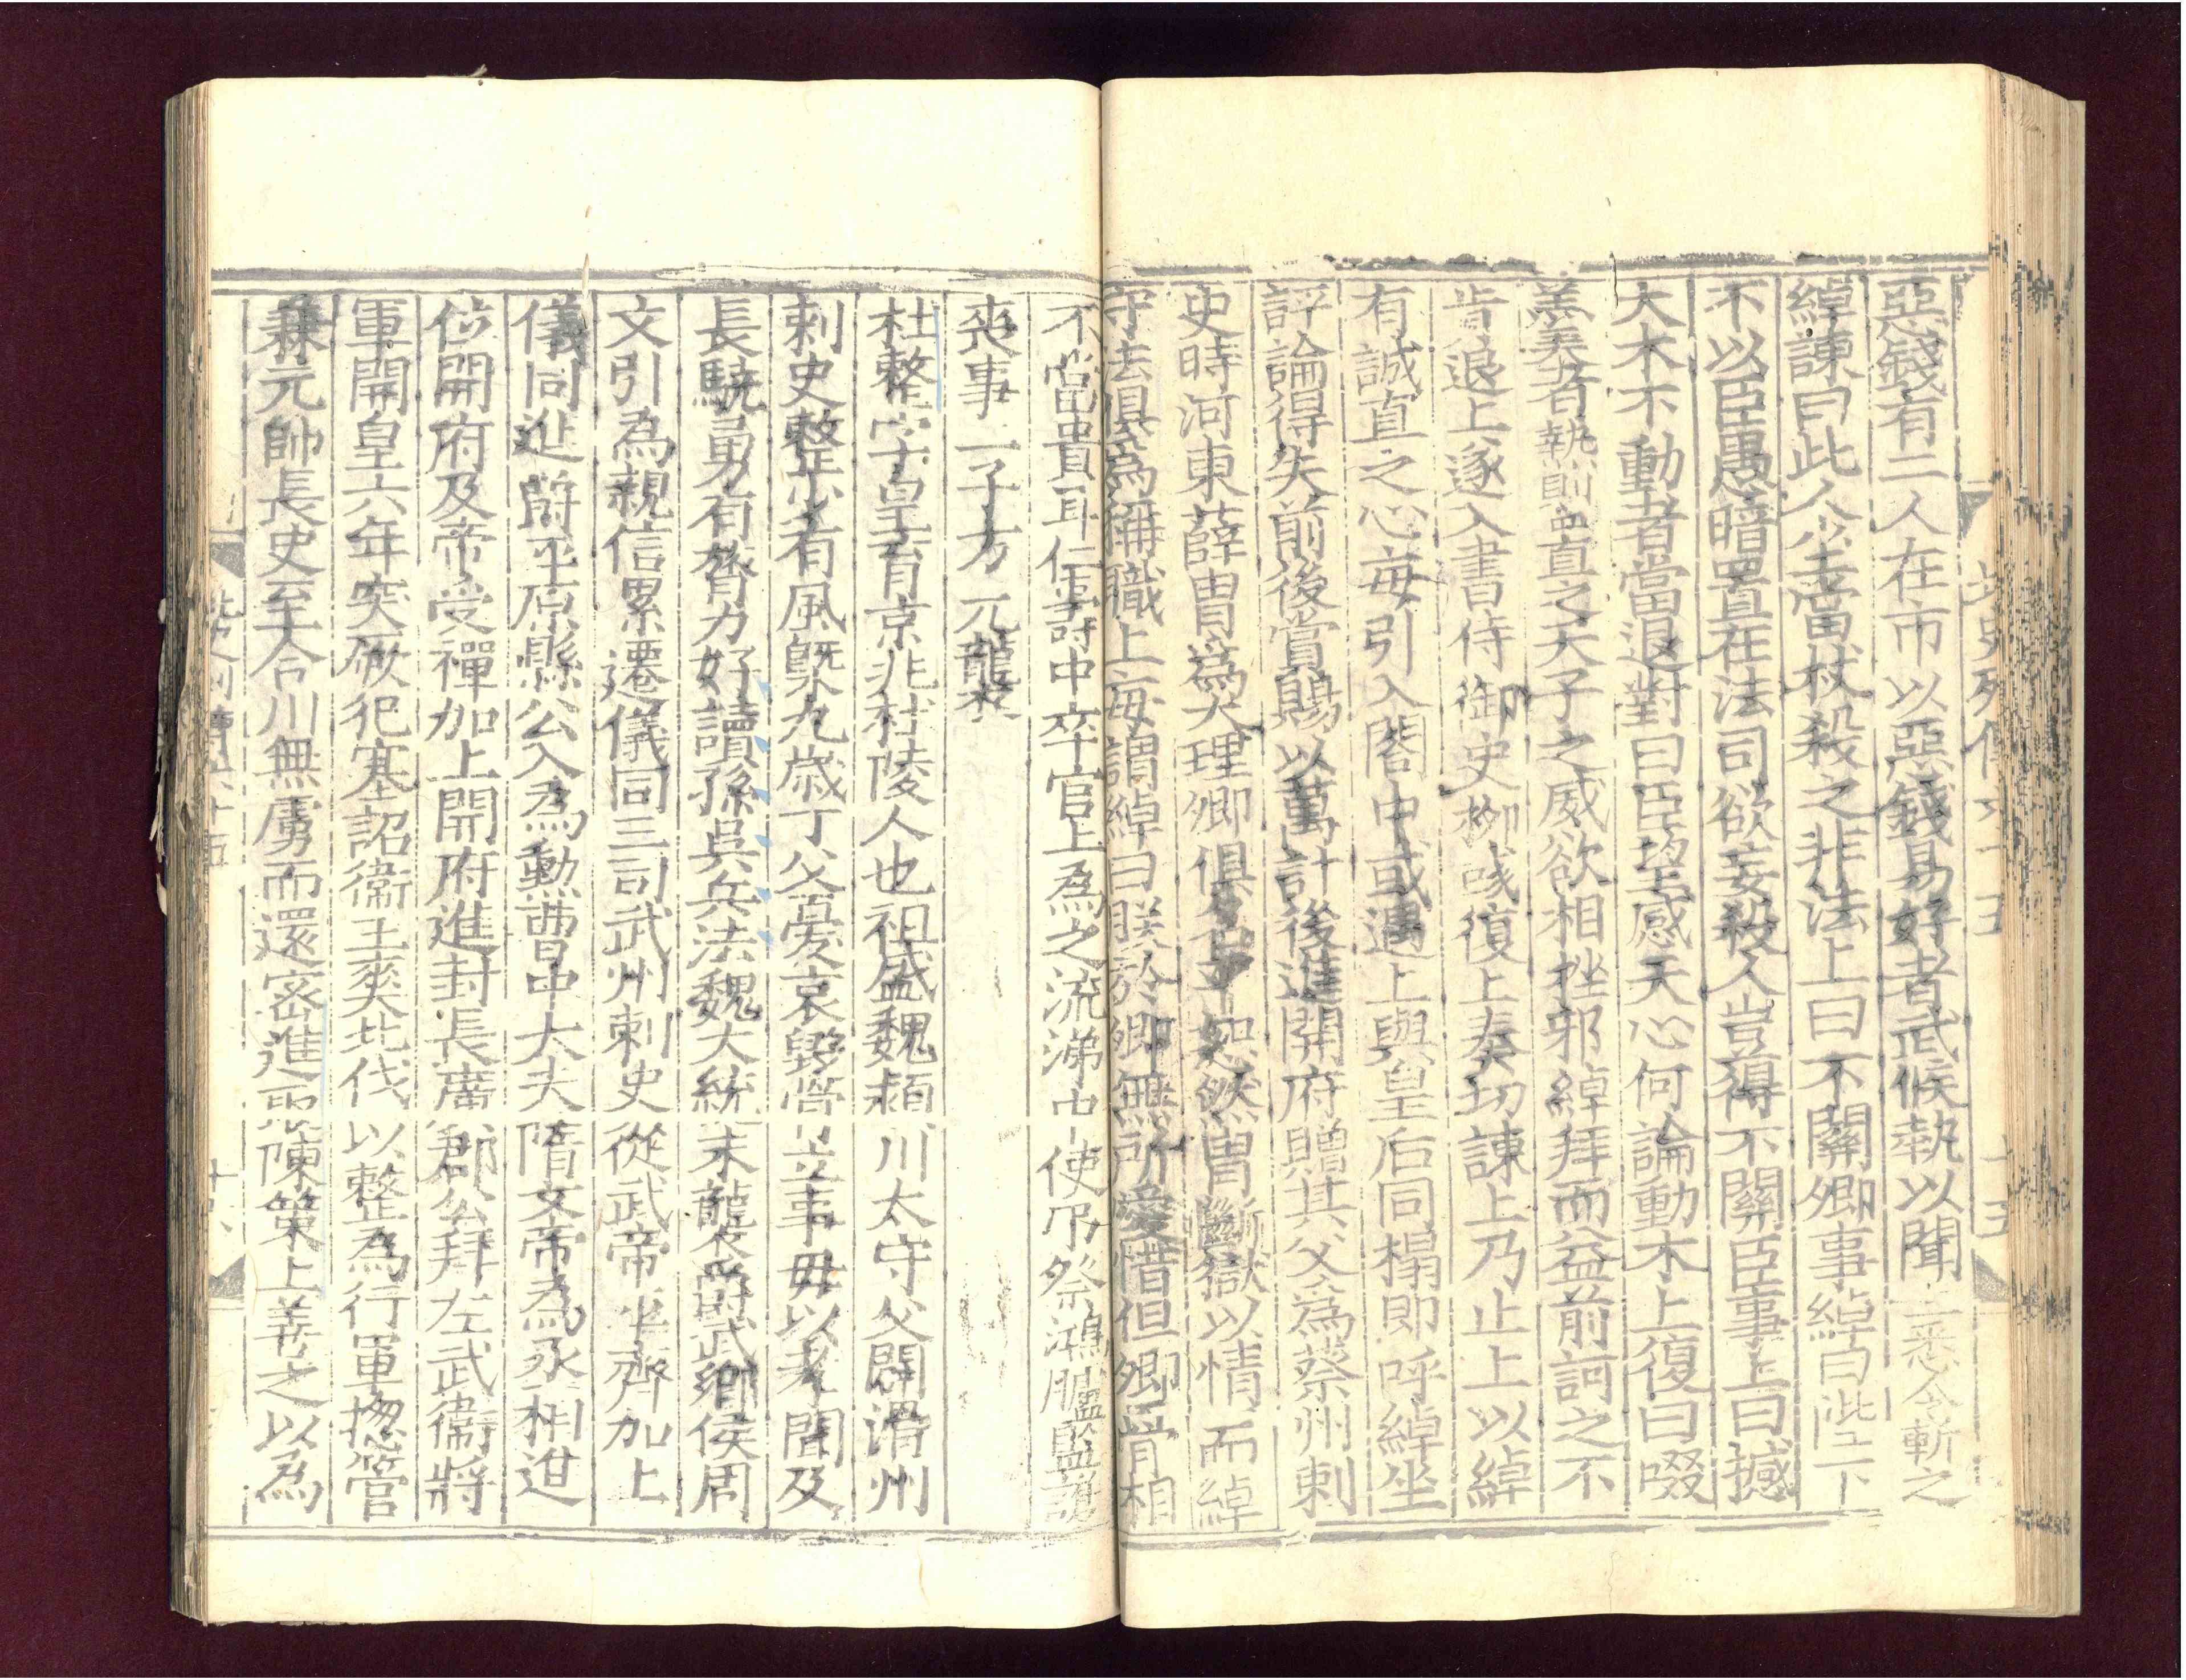 惡錢有二人在市以惡錢易好者武候執以聞上悉令斬之
綽諫曰此人坐當杖殺之非法上曰不關卿事綽曰陛下
不以臣愚暗置在法司欲妄殺人豈得不關臣事上曰撼
大木不動者當退對曰臣望感天心何論動木上復曰啜
羹者熱則置之天子之威欲相挫邪綽拜而益前訶之不
肯退上遂入書侍御史柳彧復上奏切諫上乃止上以綽
有誠直之心每引入閤中或遇上與皇后同榻即呼綽坐
評論得失前後賞賜以萬計後進開府贈其父為蔡州刺
史時河東薛胄為大理卿俱名平恕然胄斷獄以情而綽
守法俱為稱職上每謂綽曰朕於卿無所愛惜但卿骨相
不當貴耳仁壽中卒官上為之流涕中使弔祭鴻臚監護
喪事二子元方元襲
杜整字皇育京兆杜陵人也祖盛魏潁川太守父闢渭州
刺史整少有風槩九歲丁父憂哀毀骨立事母以孝聞及
長驍勇有膂力好讀孫吳兵法魏大統末襲爵武鄉侯周
文引為親信累遷儀同三司武州刺史從武帝平齊加上
儀同進爵平原縣公入為勳曹中大夫隋文帝為丞相進
位開府及帝受禪加上開府進封長廣郡公拜左武衞將
軍開皇六年突厥犯塞詔衞王爽北伐以整為行軍揔管
兼元帥長史至合川無虜而還密進取陳策上善之以為